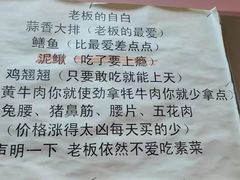 老板的自白
蒜香大排（老板的最爱）
鳝鱼（比最爱差点点）
泥鳅（吃了要上瘾）
鸡翘翘（只要敢吃就能上天）
黄牛肉你就使劲拿牦牛肉你就少拿点）
兔腰、猪鼻筋、腰片、五花肉
（价格涨得太凶每天买的少）
声明一下 老板依然不爱吃素菜